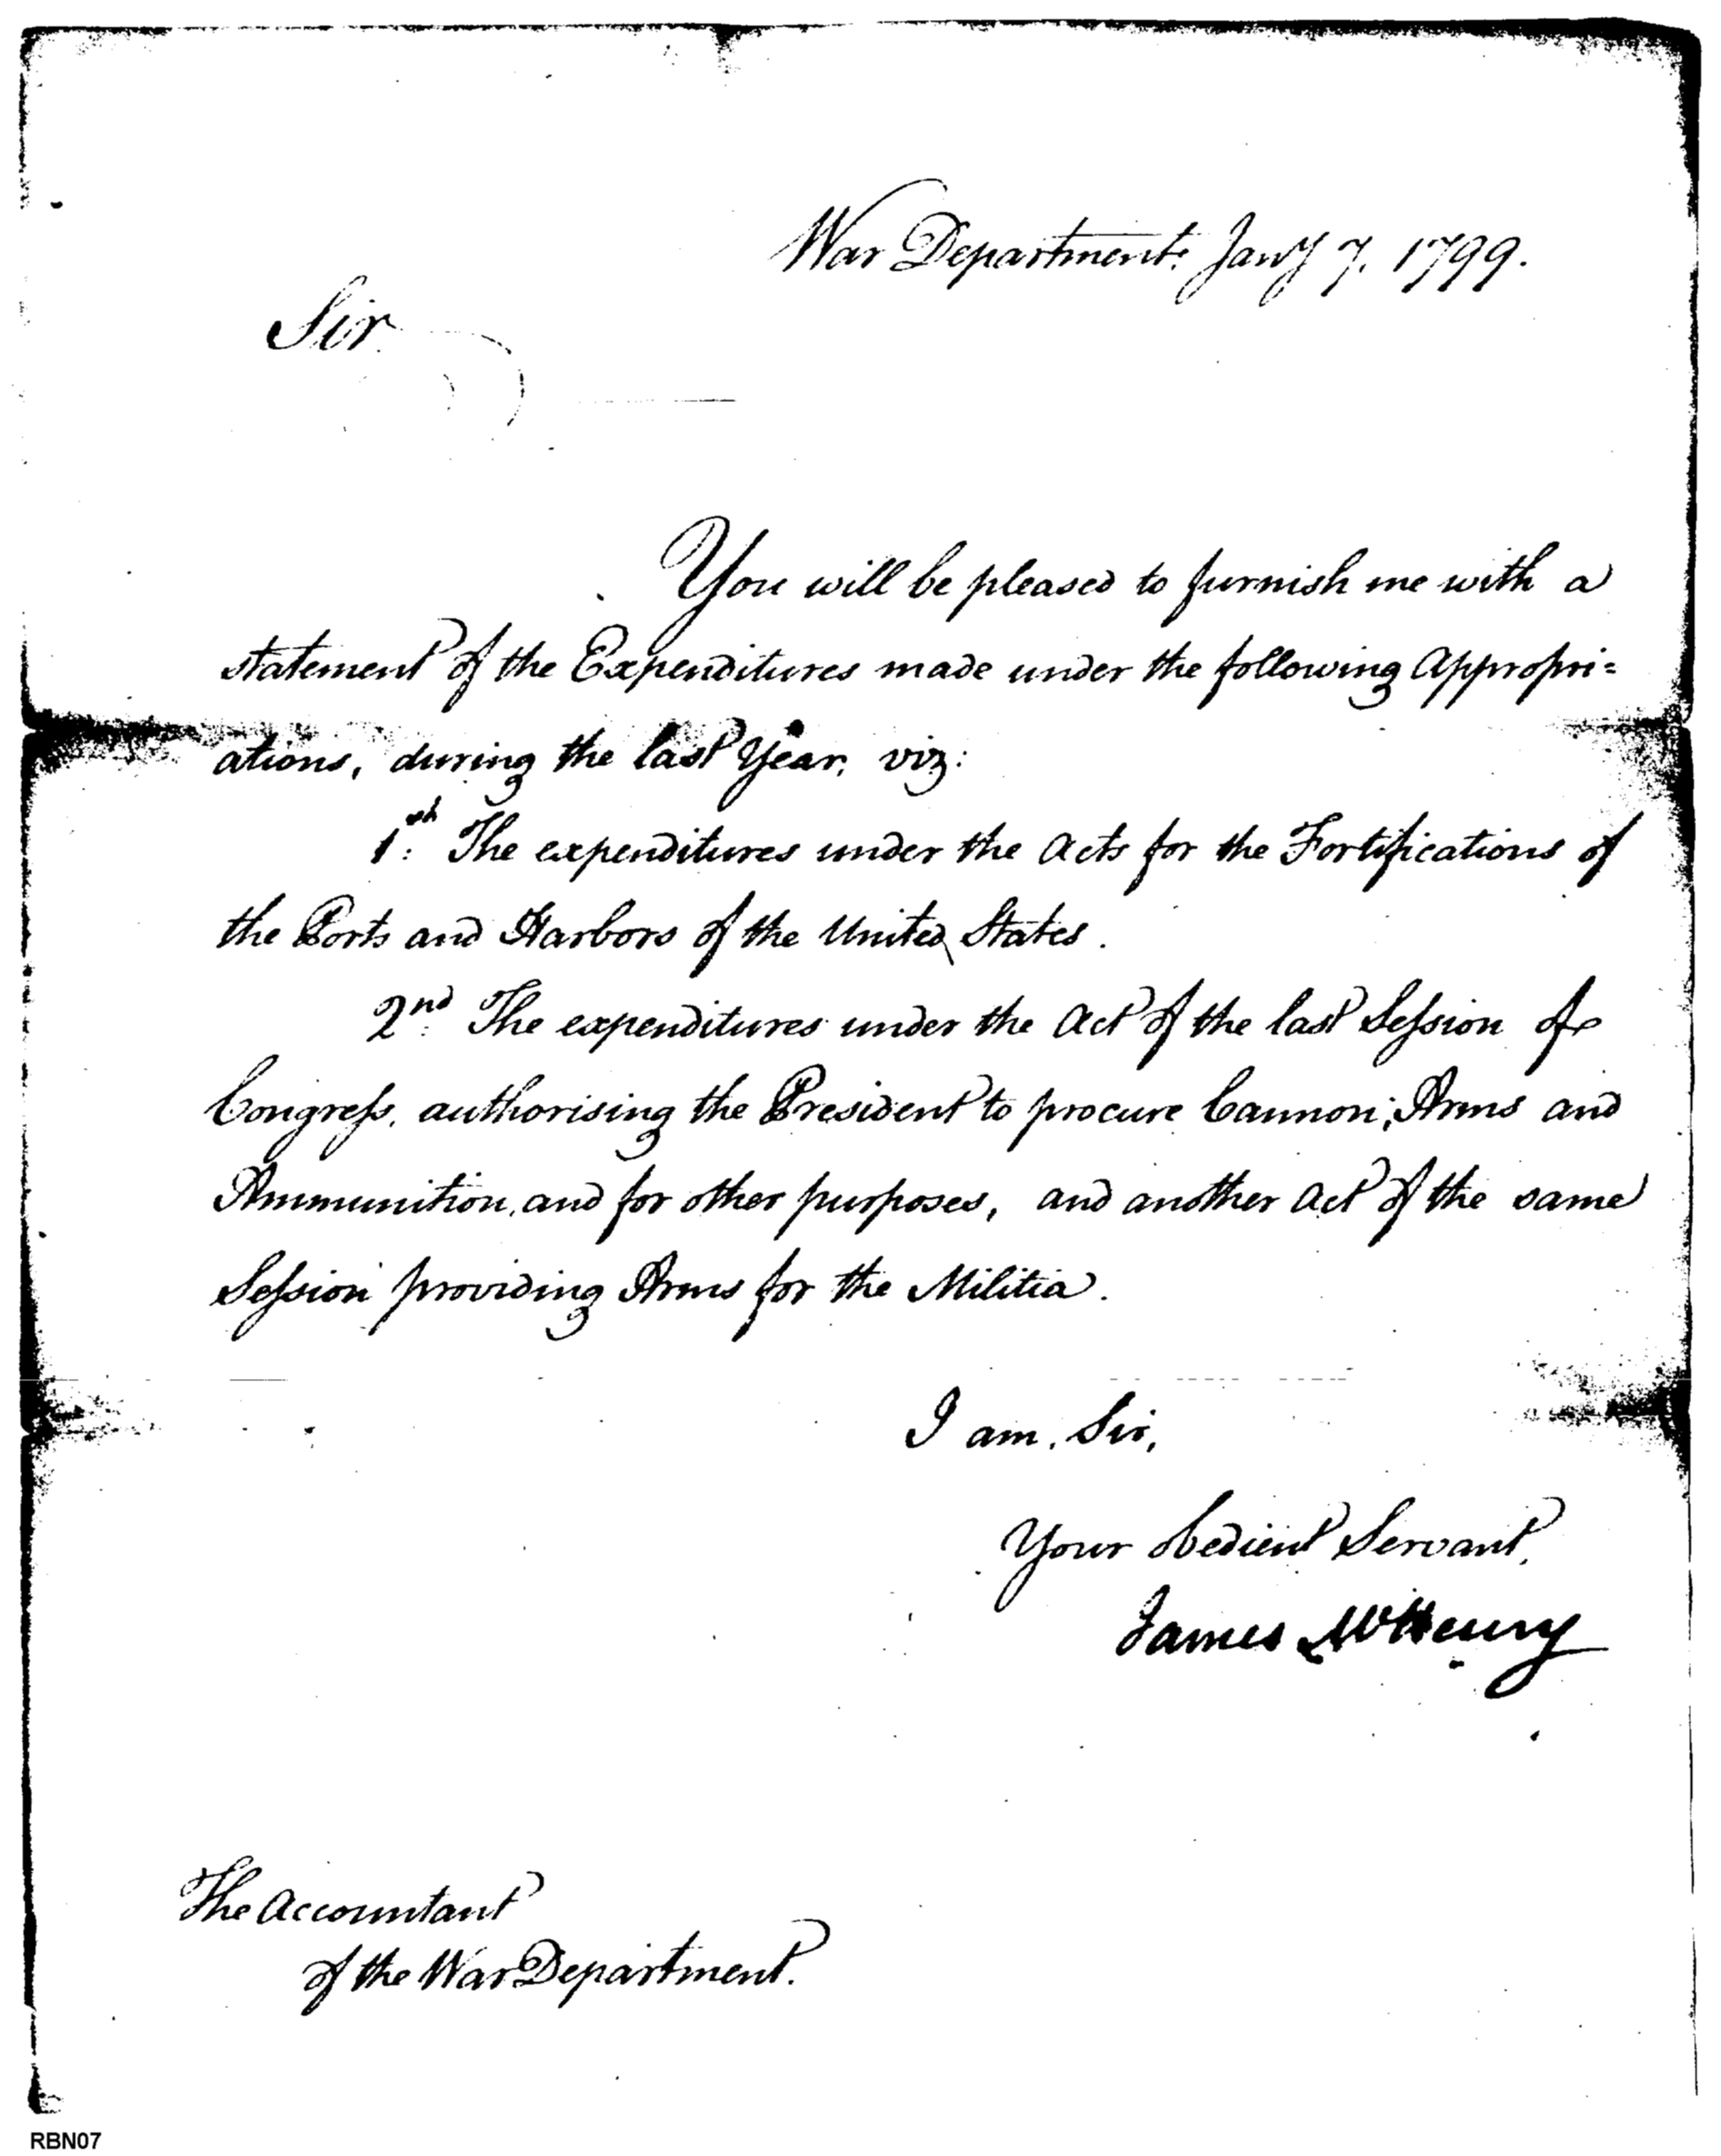 War Department, Jany 7, 1799.
Sir
You will be pleased to furnish me with a
statement of the Expenditures made under the following appropri=
ations, during the last Year, viz:
1st. The expenditures under the acts for the Fortifications of
the Ports and Harbors of the United States.
2nd. The expenditures under the act of the last Seſsion of
Congreſs, authorising the President to procure Cannon, Arms and
Ammunition, and for other purposes, and another act of the same
Seſsion providing Arms for the Militia.
I am, Sir,
Your obedient Servant,
James McHenry
The Accountant
of the War Department.
RBN07